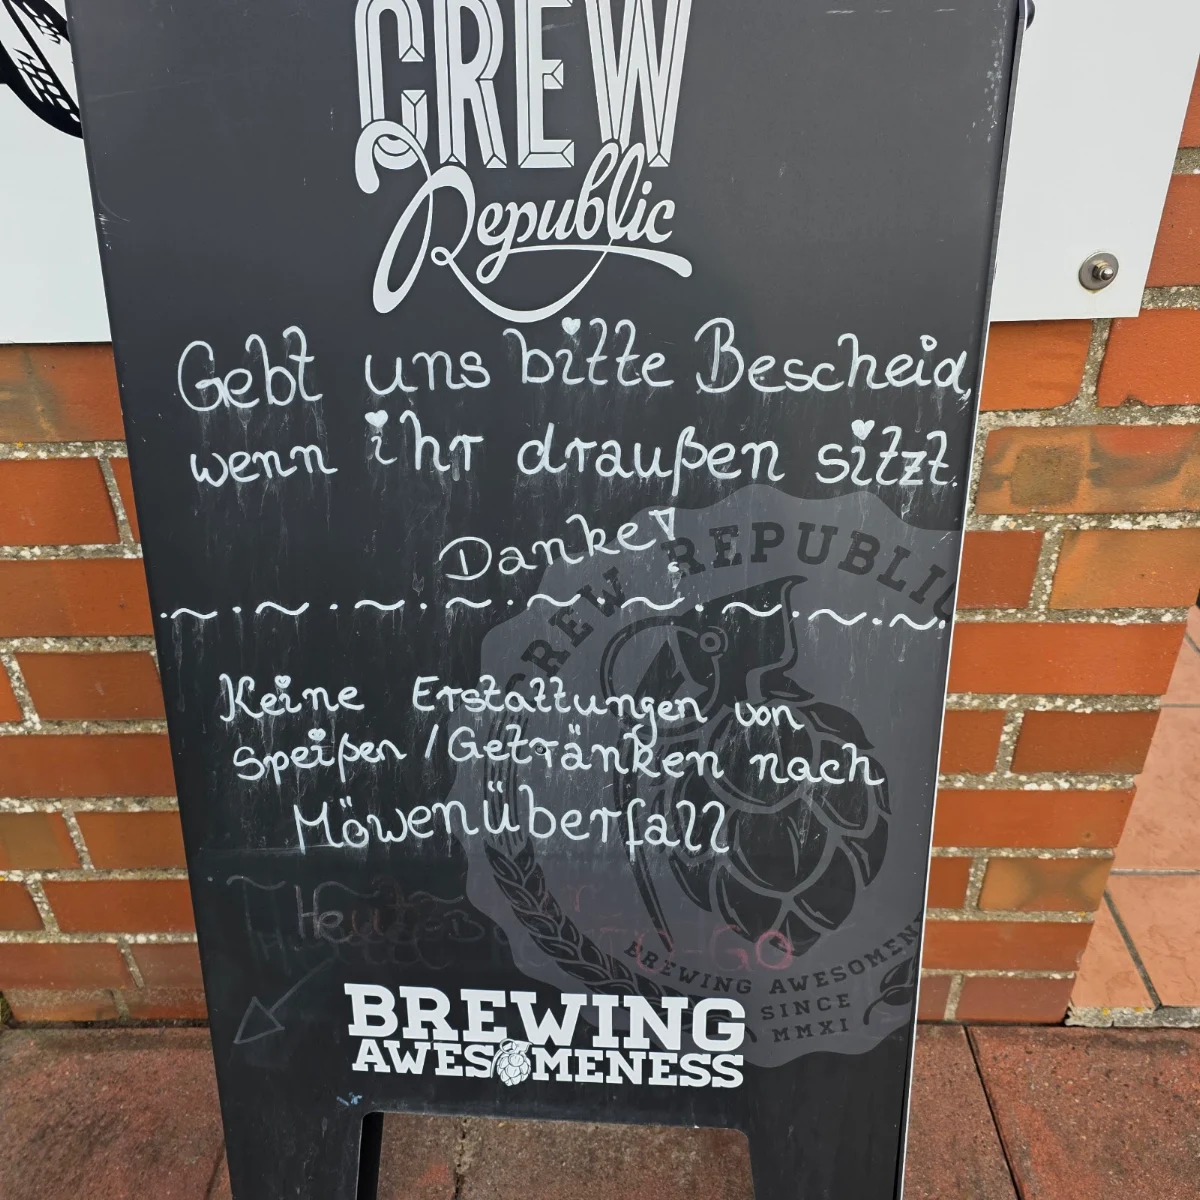 CREW
Republic
Gebt uns bitte Bescheid,
wenn ihr draußen sitzt.
Danke!
Keine Erstattungen von
Speißen / Getränken nach
Möwenüberfall
CREW REPUBLIC
BREWING AWESOMEN
SINCE
MMXI
BREWING
AWESOMENESS